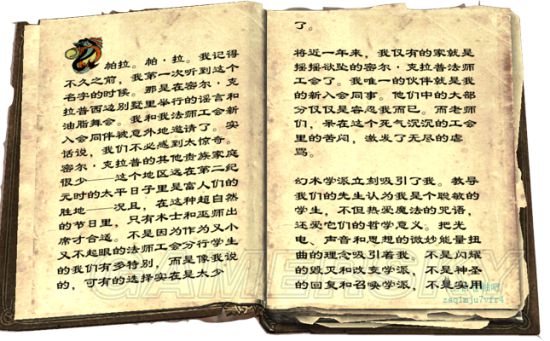 帕拉。帕·拉。我记得
不久之前,我第一次听到这个
名字的时候。那是在密尔·克
拉普西边别墅里举行的谣言和
油脂舞会。我和我法师工会新
入会同伴被意外地邀请了。实
话说,我们不必感到太惊奇。
密尔·克拉普的其他贵族家庭
很少——这个地区远在第二纪
元时的太平日子里是富人们的
胜地——况且,在这种超自然
的节日里,只有术士和巫师出
席才合适。不是因为作为又小
又不起眼的法师工会分行学生
的我们有多特别,而是像我说
的,可有的选择实在是太少
了。
将近一年来,我仅有的家就是
摇摇欲坠的密尔·克拉普法师
工会了。我唯一的伙伴就是我
的新入会同事。他们中的大部
分仅仅是容忍我而已。而老师
们,呆在这个死气沉沉的工会
里的苦闷,激发了无尽的虐
骂。
幻术学派立刻吸引了我。教导
我们的先生认为我是个聪敏的
学生,不但热爱魔法的咒语,
还爱它们的哲学意义。把光
电、声音和思想的微妙能量扭
曲的理念吸引着我,不是闪耀
的毁灭和改变学派,不是神圣
的回复和召唤学派,不是实用
GAMERSKY
zaq1mju7vfr4